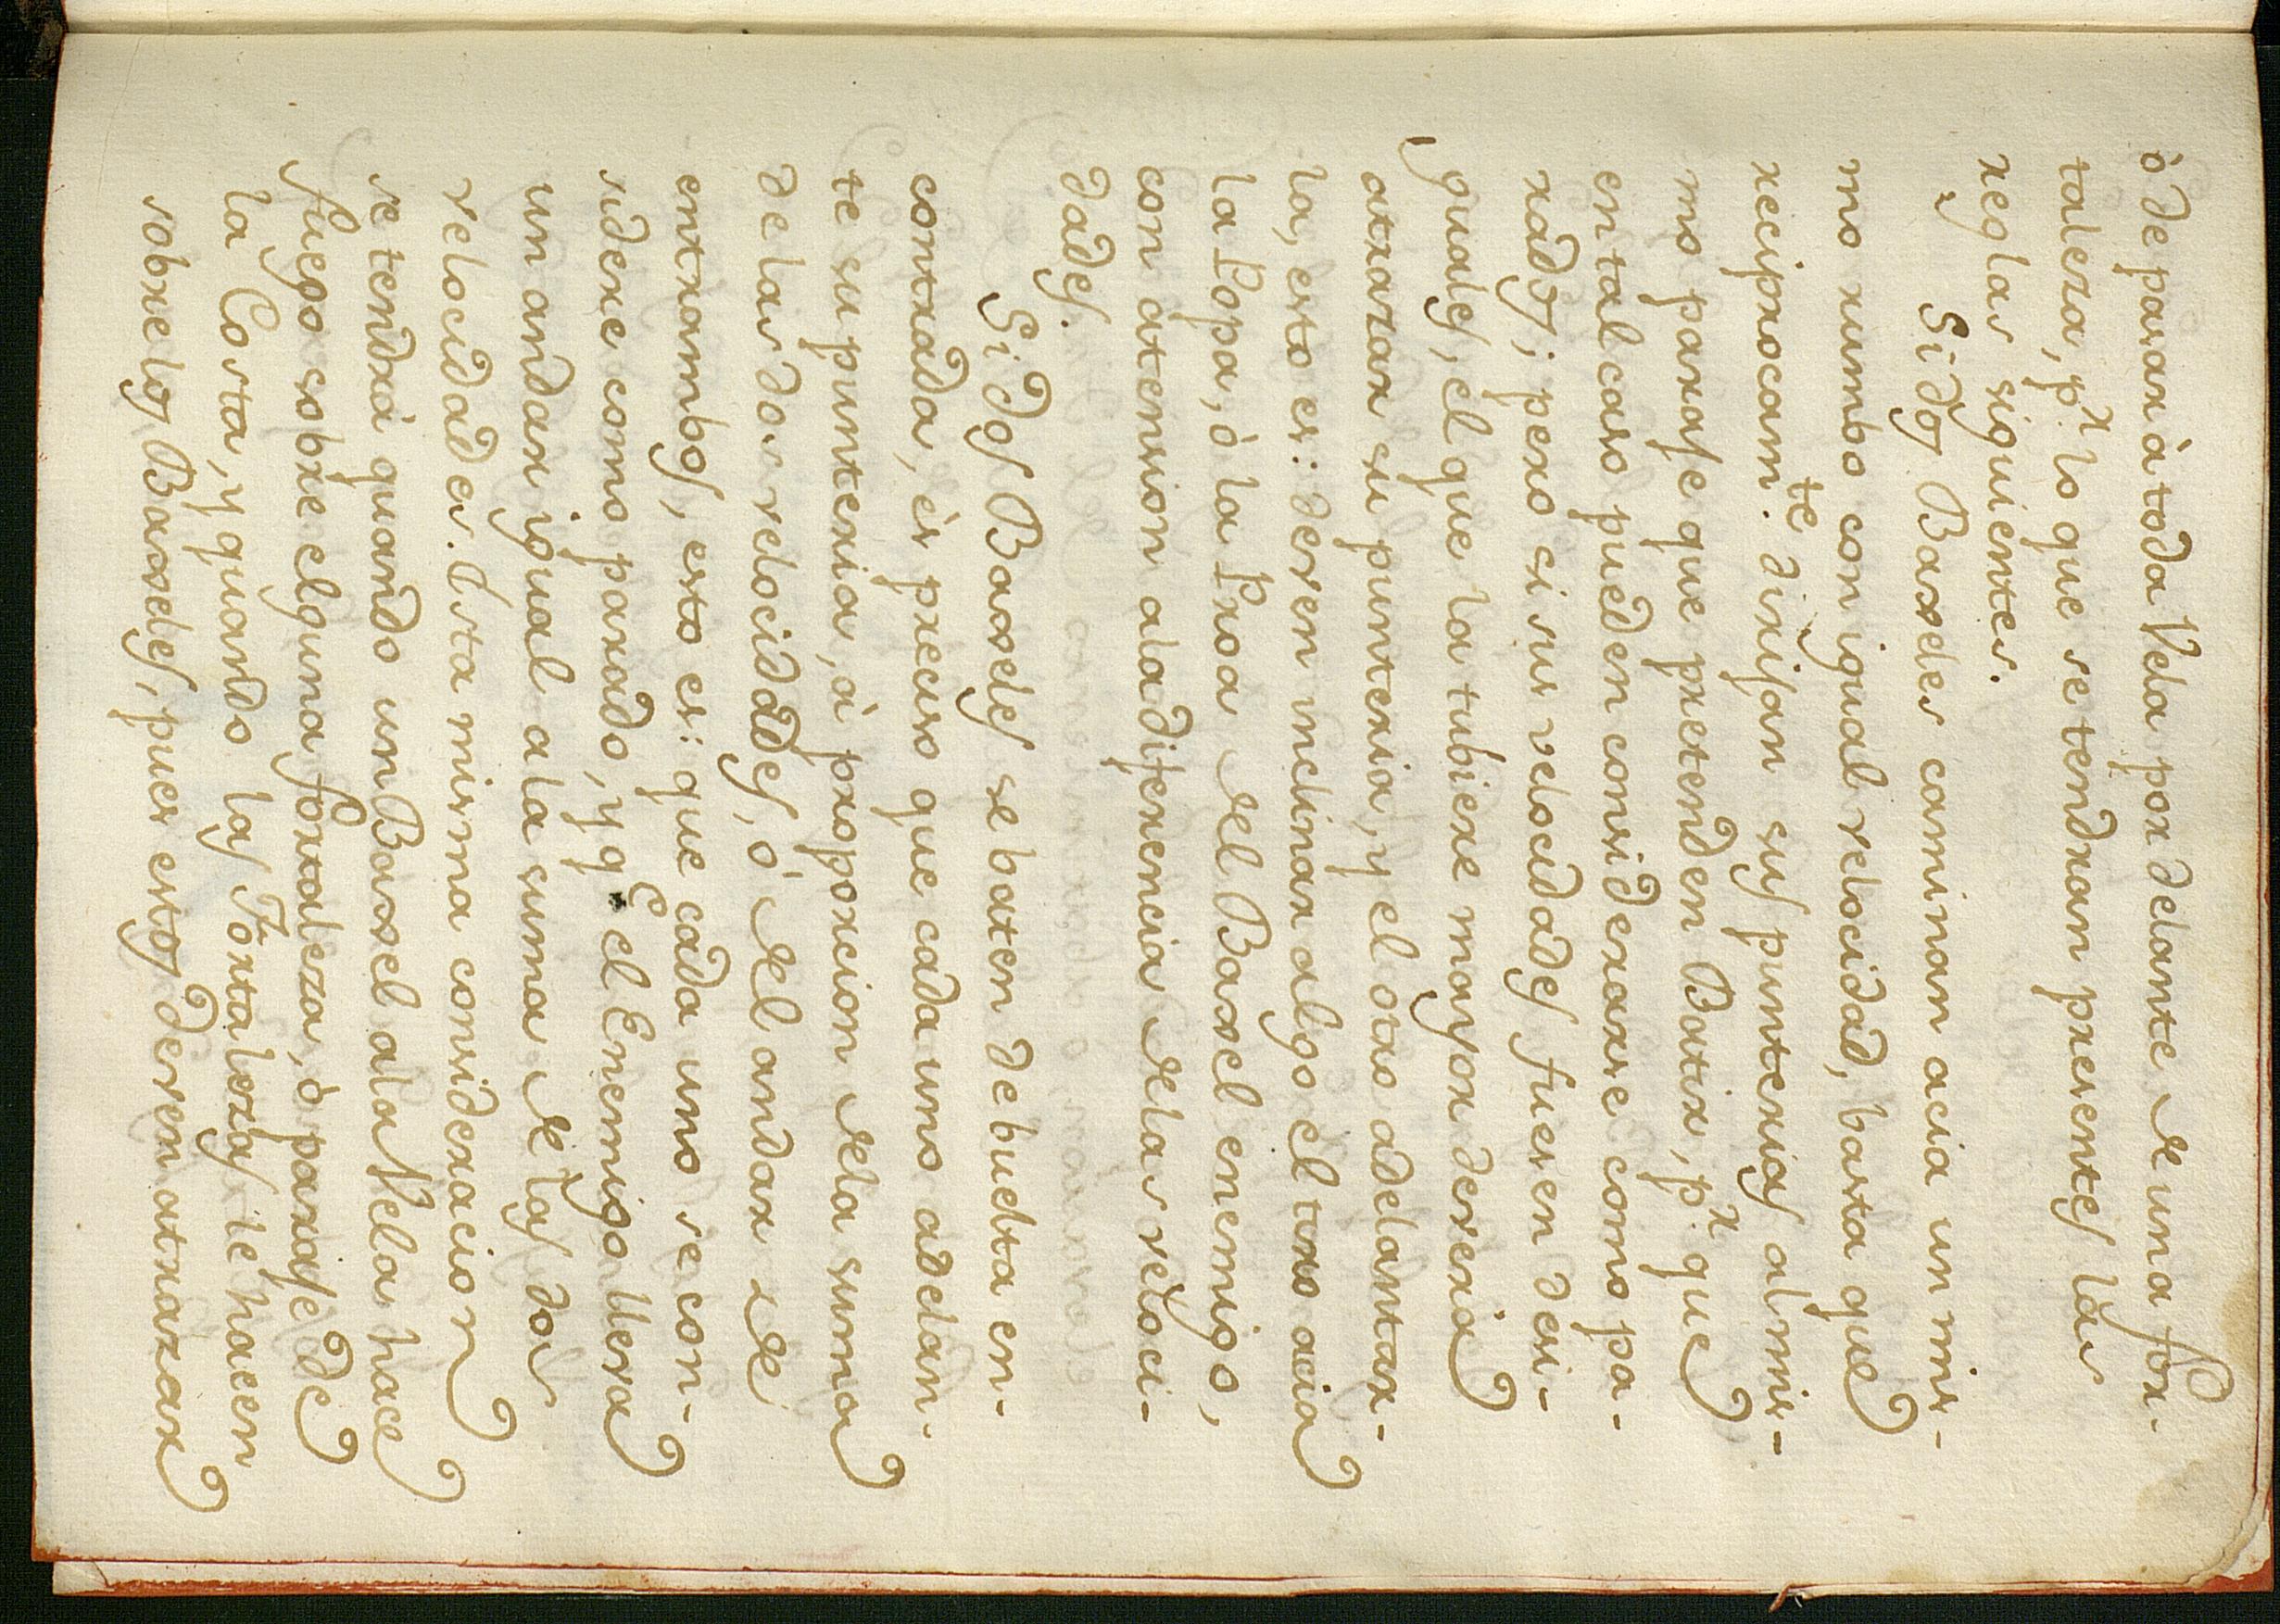 ò de pasar à toda Vela por delante de una for-
taleza, p.r lo que se tendran presentes las
reglas siguientes.
Si dos Baxeles caminan acia un mis-
mo rumbo con igual velocidad, basta que
reciprocam.te dirijan sus punterias al mis-
mo parage que pretenden Batir, p.r que
en tal caso pueden considerarse como pa-
rados; pero si sus velocidades fuesen desi-
guales, el que la tubiere mayor deverà
atrazar su punteria, y el otro adelantar-
la, esto es: deven inclinar algo el tiro acia
la Popa, ò la Proa del Baxel enemigo,
con atension a la diferencia de las veloci-
dades.
Si dos Baxeles se baten de buelta en-
contrada, és preciso que cada uno adelan-
te su punteria, à proporcion de la suma
de las dos velocidades, ó del andar de
entrambos, esto es: que cada uno se con-
sidere como parado, y q.e el Enemigo lleva
un andar igual a la suma de las dos
velocidades. Esta misma consideracion
se tendrà quando un Baxel a la Vela hace
fuego sobre elguna fortaleza, ò parage de
la Costa, y quando las Fortalezas le hacen
sobre los Baxeles, pues estos deven atrazar